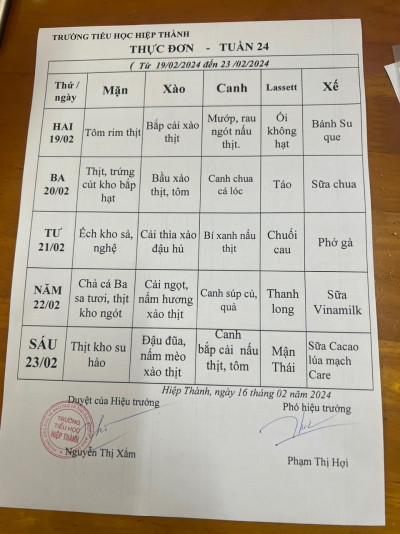 TRƯỜNG TIỂU HỌC HIỆP THÀNH
THỰC ĐƠN - TUẦN 24
( Từ 19/02/2024 đến 23 /02/2024)
Thứ / ngày Mặn Xào Canh Lassett Xế
HAI 19/02 Tôm rim thịt Bắp cải xào thịt Mướp, rau ngót nấu thịt. Ổi không hạt Bánh Su que
BA 20/02 Thịt, trứng cút kho bắp hạt Bầu xào thịt, tôm Canh chua cá lóc Táo Sữa chua
TƯ 21/02 Ếch kho sả, nghệ Cải thìa xào đậu hủ Bí xanh nấu thịt Chuối cau Phở gà
NĂM 22/02 Chả cá Ba sa tươi, thịt kho ngót Cải ngọt, nấm hương xào thịt Canh súp củ, quả Thanh long Sữa Vinamilk
SÁU 23/02 Thịt kho su hào Đậu đũa, nấm mèo xào thịt Canh bắp cải nấu thịt, tôm Mận Thái Sữa Cacao lúa mạch Care
Hiệp Thành, ngày 16 tháng 02 năm 2024
Duyệt của Hiệu trưởng Phó hiệu trưởng
TRƯỜNG
TIỂU HỌC
HIỆP THÀNH
Nguyễn Thị Xắm Phạm Thị Hợi